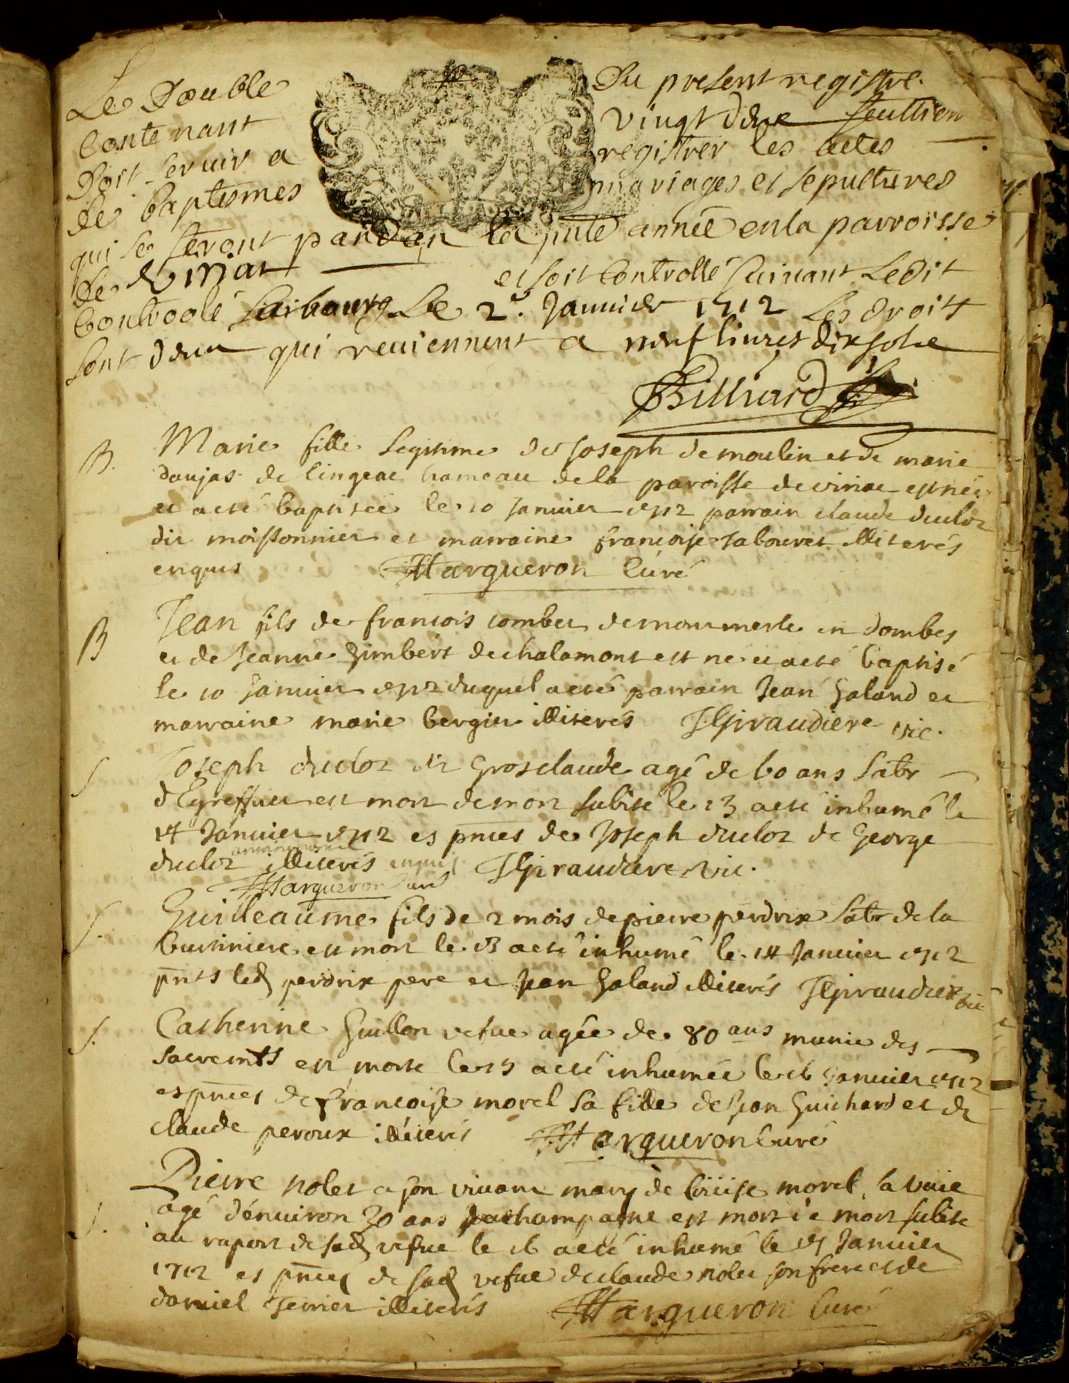 Le Double Du present registre
Contenant vingt deux feuilliers
Doit servir a registrer les actes
de baptesmes mariages et sepultures
qui se feront pandan la pnte année en la parroisse
de et soit Controllé suivant Ledit
Controolé Le 2e. Janvier 1712 Les droits
sont deux qui reviennent a neuf livres dix sols
Billiard
B. Marie fille legitime de Joseph demoulin et de marie
daujas de lingeac hameau de la paroisse de viriac est née
et a eté baptisée le 10 Janvier 1712 parrain claude ducloz
dit moissonnier et marraine francoise Tabouret illiterés
enquis HHarqueron Curé
B Jean fils de francois combet demonmerle en dombes
et de Jeanne Jimbert de chalamont est né et a eté baptisé
le 10 Janvier 1712 duquel a eté parrain Jean Galand et
marraine marie bergier illiterés JGiraudiere vic.
S Joseph ducloz dit grosclaude agé de 60 ans labr
est mort de mort subite le 13 a eté inhumé le
14 Janvier 1712 es pnces de Joseph ducloz de George
ducloz illiterés enquis JGiraudiere vic.
HHarqueron curé
S. Guilleaume fils de 2 mois de pierre perdrix labr de la
burtiniere est mort le 13 a eté inhumé le 14 Janvier 1712
pnts led perdrix pere et Jean Galand illiterés JGiraudiere vic
S. Catherine Guillon vefve agée de 80 ans munie des
sacremts est morte le 15 a eté inhumée le 16 Janvier 1712
es pnces de francoise morel sa fille de Jean Guichard et de
claude peroux illiterés HHarqueron Curé
S. Pierre nolet a son vivant mary de louise morel
agé d'environ 30 ans est mort de mort subite
au raport de sad vefve le 16 a eté inhumé le 17 Janvier
1712 es pnces de sad vefve de claude nolet son frere et de
daniel illiterés HHarqueron Curé